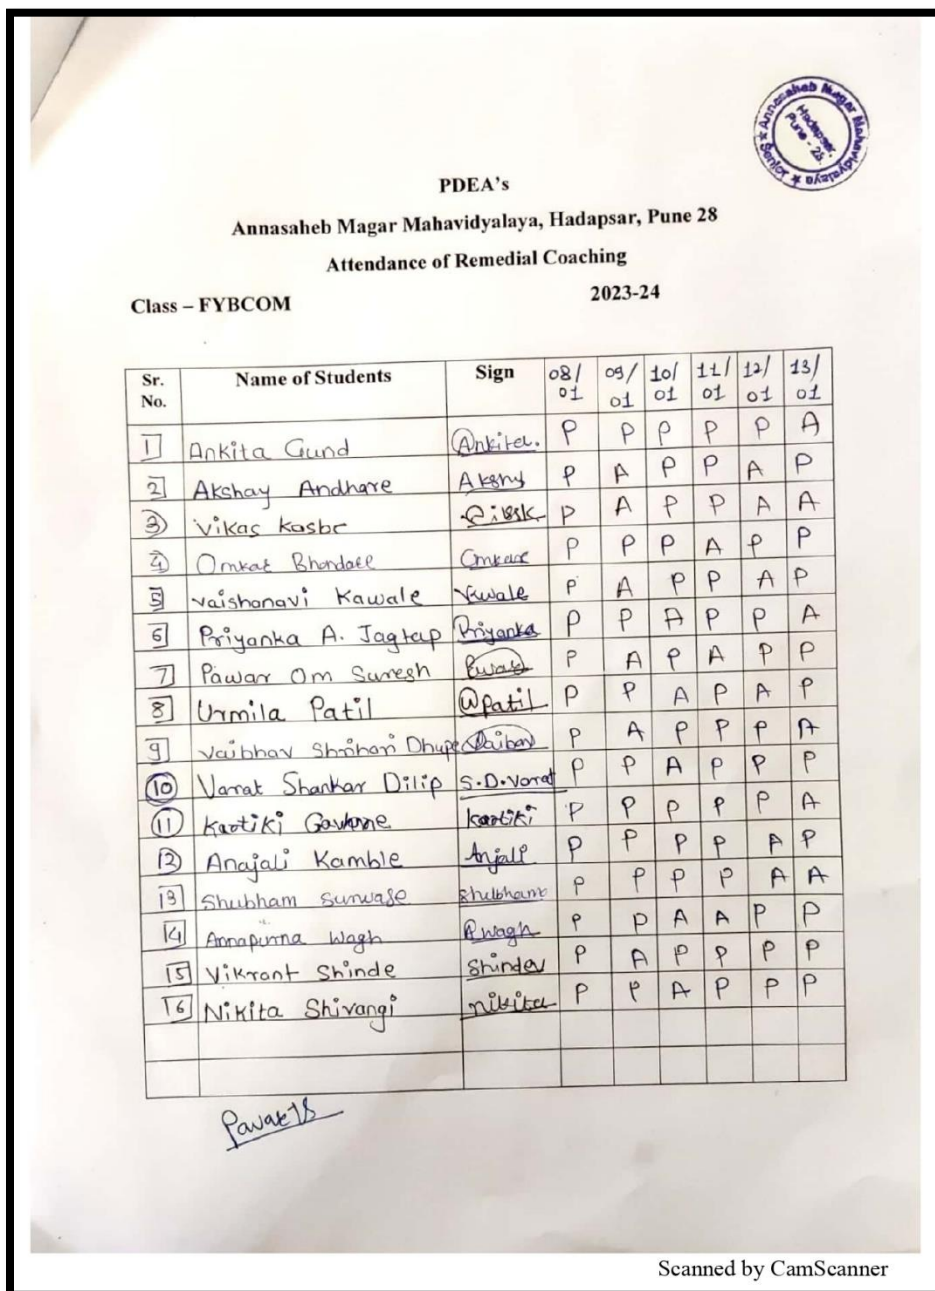 Annasaheb Magar Mahavidyalaya
Hadapsar,
Pune - 28.
PDEA's
Annasaheb Magar Mahavidyalaya, Hadapsar, Pune 28
Attendance of Remedial Coaching
Class – FYBCOM 2023-24
Sr. No. Name of Students Sign 08/01 09/01 10/01 11/01 12/01 13/01
1 Ankita Gund Ankita. P P P P P A
2 Akshay Andhare Akshy P A P P A P
3 Vikas Kasbe P A P P A A
4 Omkar Bhandare Omkar P P P A P P
5 Vaishanavi Kawale Vkwale P A P P A P
6 Priyanka A. Jagtap Priyanka P P A P P A
7 Pawar Om Suresh P A P A P P
8 Urmila Patil Patil P P A P A P
9 Vaibhav Shrihari Dhupe Vaibav P A P P P A
10 Varat Shankar Dilip S.D.Varat P P A P P P
11 Kartiki Kartiki P P P P P A
12 Anajali Kamble Anjali P P P P A P
13 Shubham Surwase Shubham P P P P A A
14 Annapurna Wagh Awagh P P A A P P
15 Vikrant Shinde Shindev P A P P P P
16 Nikita Shivangi nikita P P A P P P
Scanned by CamScanner